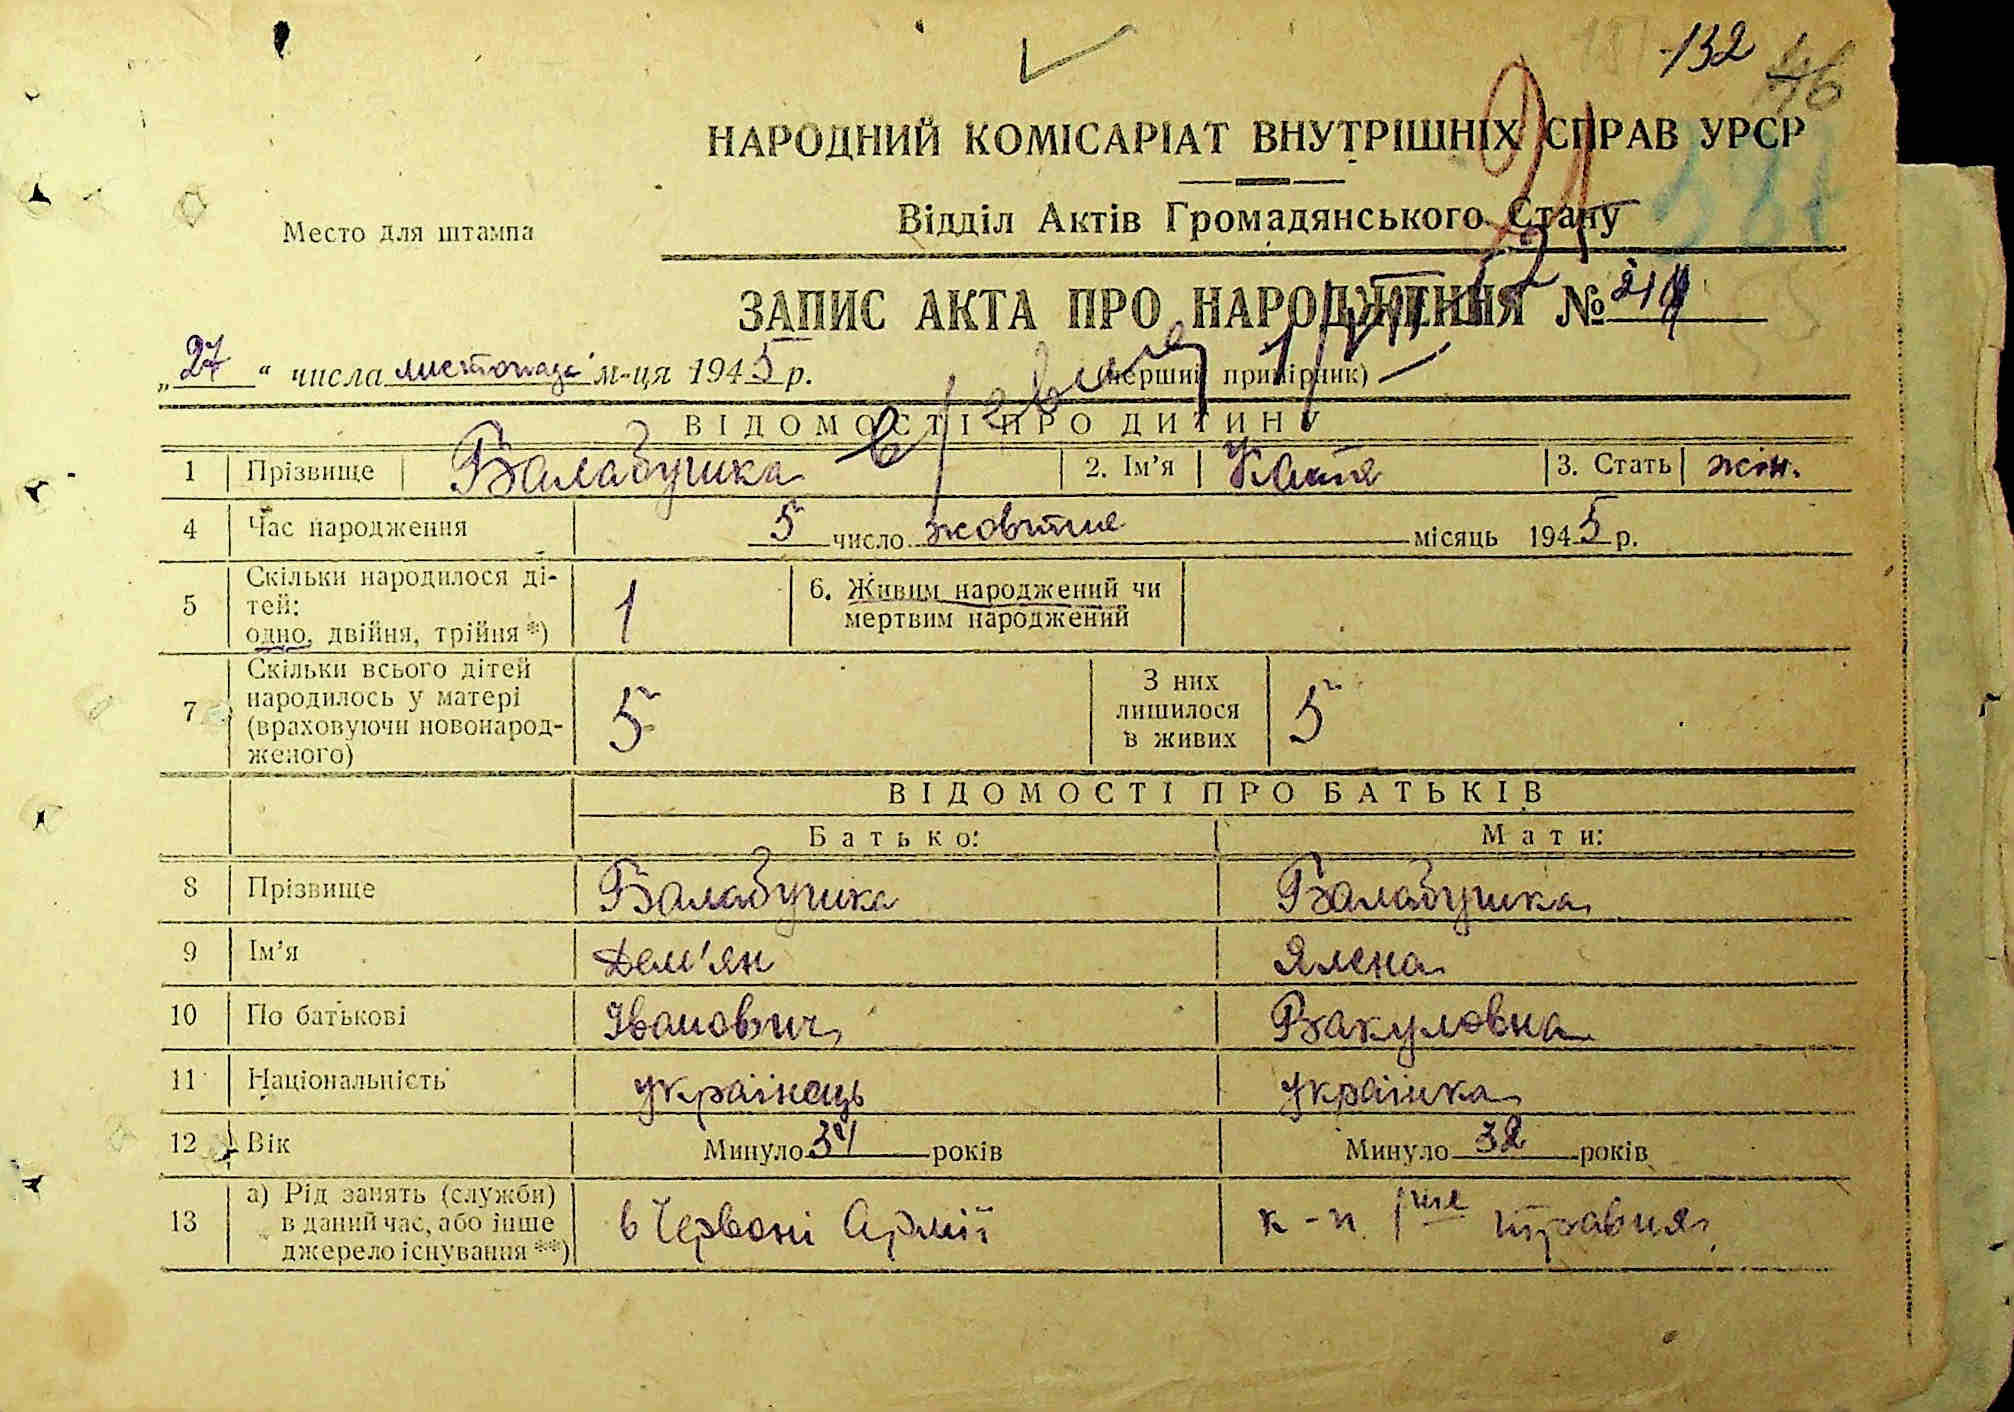 132
46
НАРОДНИЙ КОМІСАРІАТ ВНУТРІШНІХ СПРАВ УРСР
Место для штампа
Відділ Актів Громадянського Стану
ЗАПИС АКТА ПРО НАРОДЖЕННЯ №
„27“ числа листопада м-ця 1945 р. (перший примірник)
ВІДОМОСТІ ПРО ДИТИНУ
1 Прізвище Балабушка 2. Ім'я Катя 3. Стать жін.
4 Час народження 5 число жовтня місяць 1945 р.
5 Скільки народилося ді-
тей:
одно, двійня, трійня*) 1 6. Живим народжений чи
мертвим народжений
7 Скільки всього дітей
народилось у матері
(враховуючи новонарод-
женого) 5 З них
лишилося
в живих 5
ВІДОМОСТІ ПРО БАТЬКІВ
Батько: Мати:
8 Прізвище Балабушка Балабушка
9 Ім'я Дем'ян Ялена
10 По батькові Іванович Вакуловна
11 Національність українець українка
12 Вік Минуло 34 років Минуло 32 років
13 а) Рід занять (служби)
в даний час, або інше
джерело існування**) в Червоні Армії к-п 1ше травня